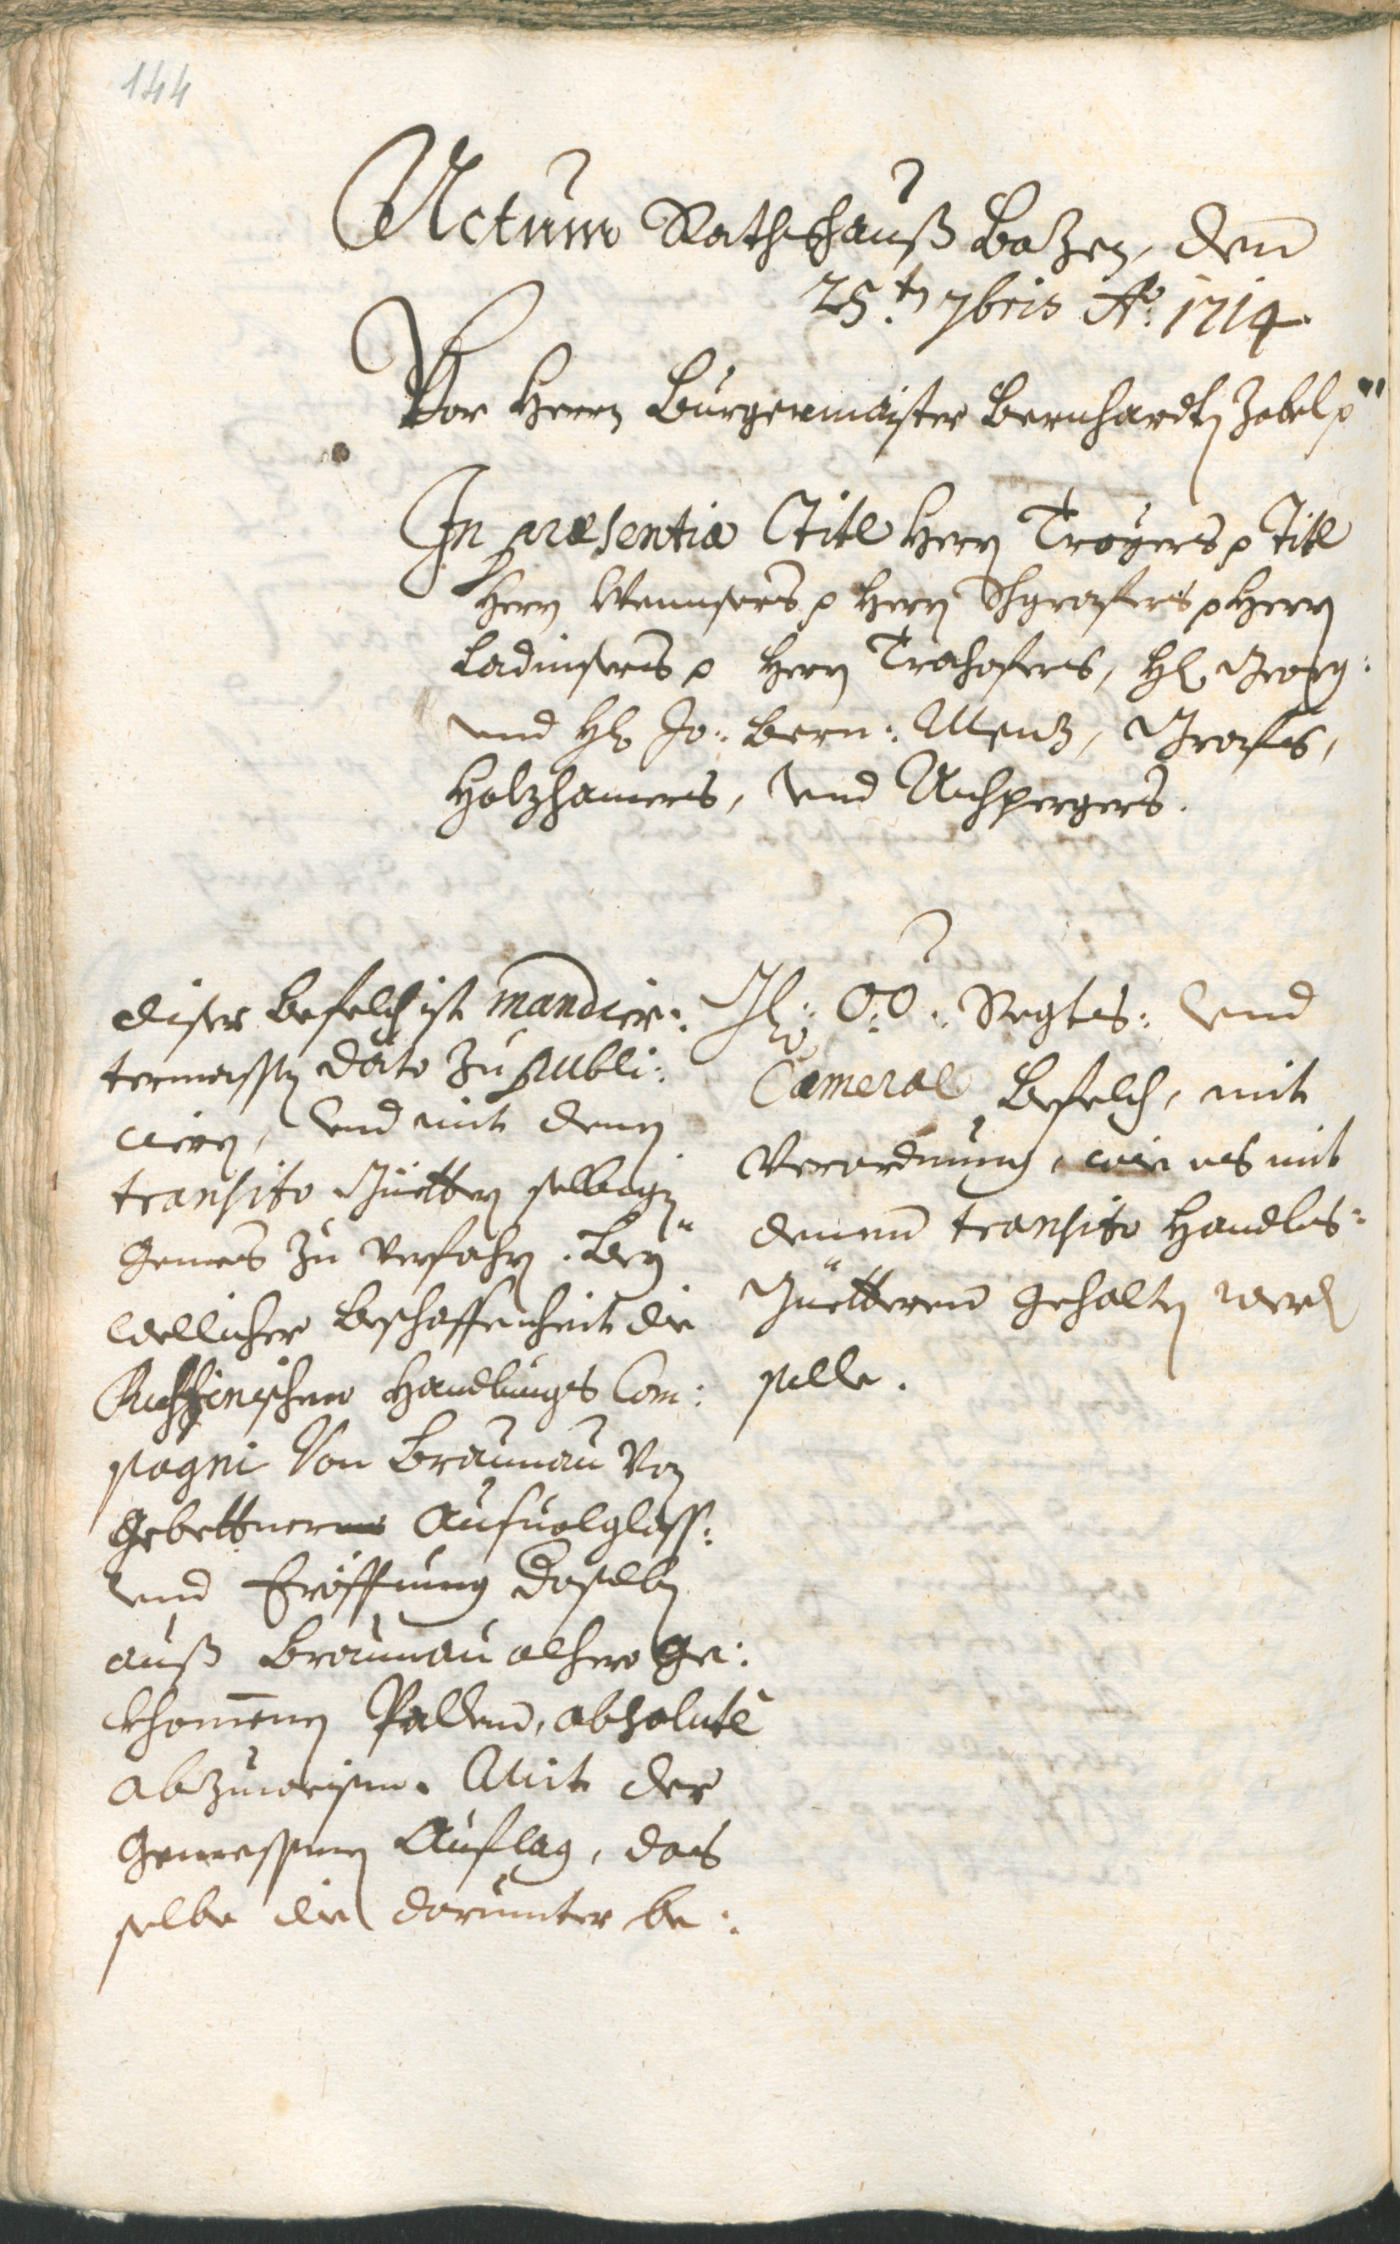 144
Actum Rathshauß Bozen, den
25.ten 7bris Ao: 1714.
Vor Herrn Burgermaister Bernhardten Zobel p
In præsentia Titl Herrn Troyers p Titl
Herrn Wennsers p Herrn Schgrafers p Herrn
Ladinsers p Herrn Trachofers, H: Georg:
und H: Jo: Bern: Menz, Grafs,
Holzhamers, und Aichpergers.
Iro: O:Ö: Regts: und
Cameral Befelch, mit
Verordnung, wie es mit
denen transito Handls=
Güetteren gehalten werden
solle.
Diser Befelch ist mandier:
termassen dato zu publi:
cieren, und mit denen
transito Güettern selbigen
gemes zu verfahren. Bey
wellicher Beschaffenheit die
Handlungs Com:
pagni von Braunau von
gebettner Ausvolglass:
und Eröffnung daselben
auß Braunau alhero ge:
khomenen Pallen, absolutè
abzuweisen. Mit der
gemessenen Auflag, das
selbe die darunter be: